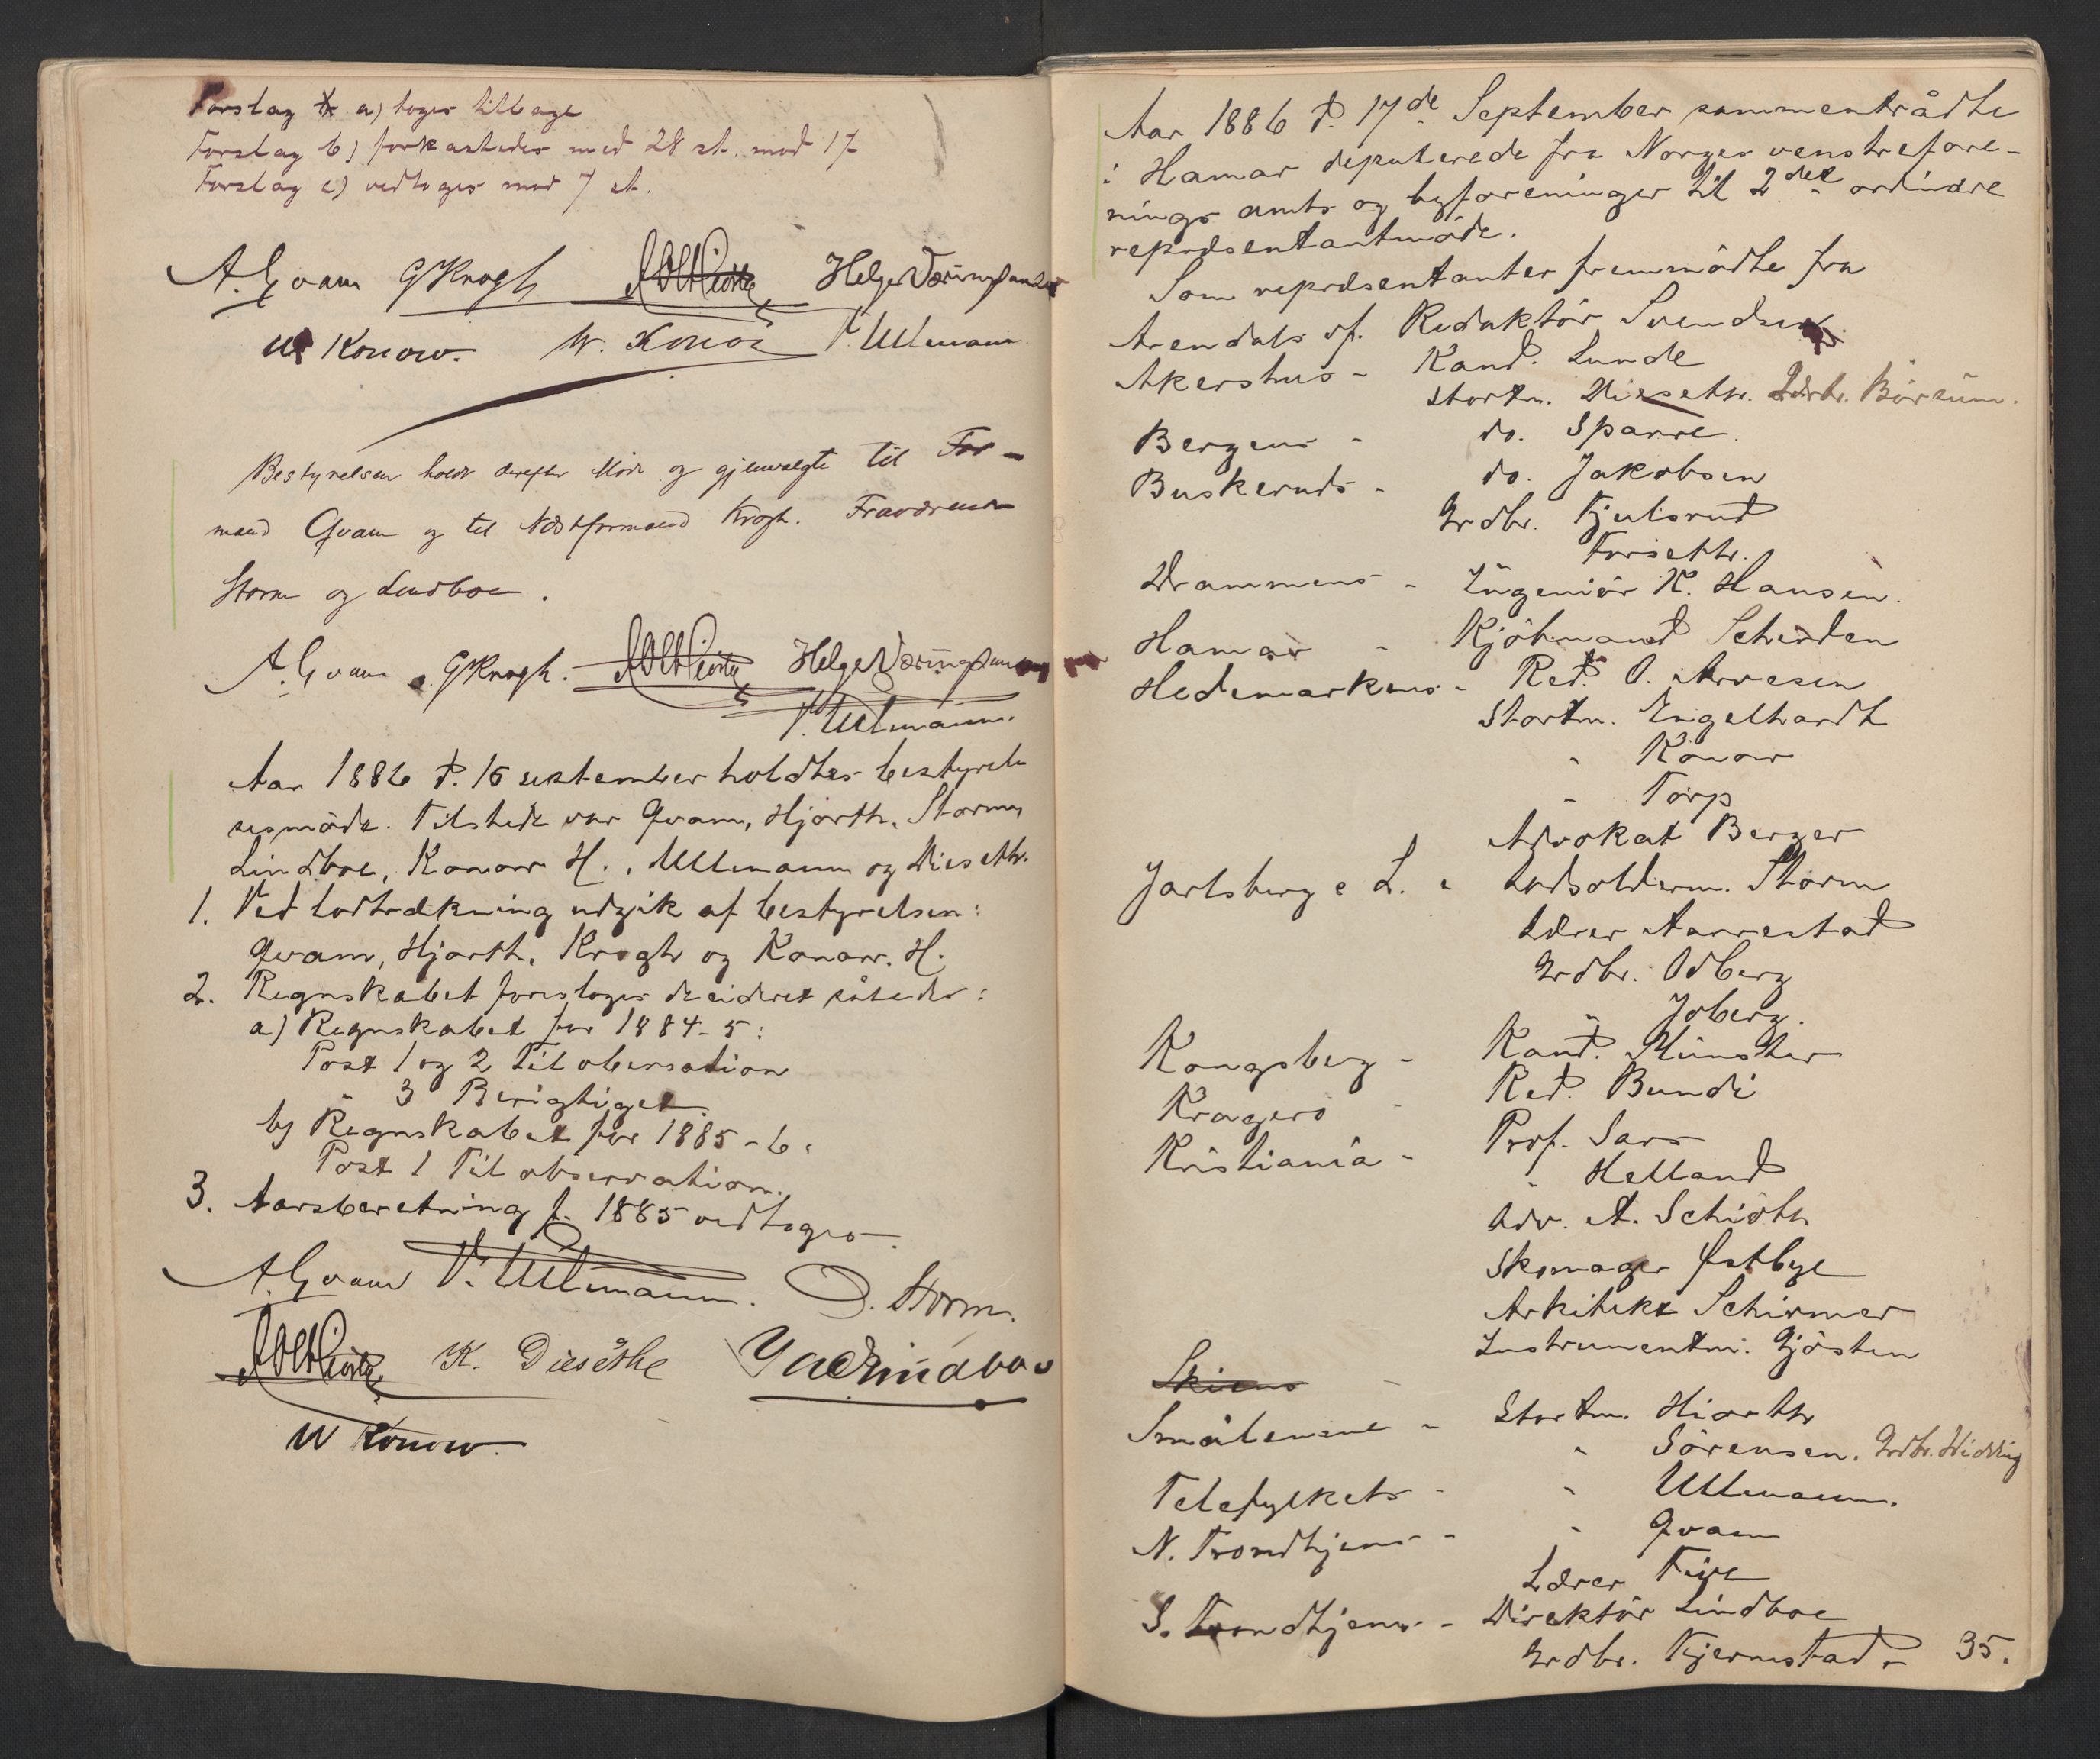 Forslag a) toges tilbage
Forslag b) forkastedes med 28 st. mod 17
Forslag c) vedtoges mod 7 st.
A. Qvam G Krogh Helge Væringsaasen
W Konow. W. Konow V. Ullmann
Bestyrelsen holdt derefter Möde og gjenvalgte til For-
mand Qvam og til Næstformand Krogh. Fraværende
Storm og Lindboe.
A. Qvam. G Krogh. Helge Væringsaasen
V. Ullmann.
Aar 1886 d. 16 september holdtes bestyrel-
sesmöde. Tilstede var Qvam, Hjorth, Storm,
Lindboe, Konow H., Ullmann og Dieseth.
1. Ved lodtrækning udgik af bestyrelsen:
Qvam, Hjorth, Krogh og Konow. H.
2. Regnskabet foresloges decideret således:
a) Regnskabet for 1884-5:
Post 1 og 2 Til obersation
3 Berigtiget.
b) Regnskabet for 1885-6:
Post 1 Til observation.
3. Aarsberetning f. 1885 vedtoges.
A. Qvam V. Ullmann. O. Storm.
K. Diesethe Lindboe
W Konow.
Aar 1886 d. 17de September sammentrådte
i Hamar deputerede fra Norges venstrefore-
nings amts og byforeninger til 2det ordinære
repræsentantmöde.
Som repræsentanter fremmödte fra
Arendals vf. Redaktör Svendsen
Akershus - Kand. Lunde
Stortm. Dieseth. Gdbr. Börsum.
Bergens - do. Sparre.
Buskeruds - do. Jakobsen
Grdbr. Kjulsrud
Forseth.
Drammens - Ingeniör K. Hansen.
Hamar - Kjöbmand Scherden
Hedemarkens - Red. O. Arvesen
Stortm. Engelhardt
" Konow
" Torp
Advokat Berger
Jarlsberg e L. " Lodsolderm. Storm
Lærer Aarrestad
Grdbr. Odberg
" Joberg.
Kongsberg - Kand. Münster
Kragerö - Red. Bundi
Kristiania - Prof. Sars
" Helland
Adv. A. Schiöth
Skomager Østbye
Arkitekt Schirmer
Instrumentm. Gjösten
Skiens -
Smålenene - Stortm. Hiorth
" Sörensen. Grdbr. Hidding
Telefylkets - " Ullmann.
N. Trondhjems - " Qvam
Lærer Five
S. Trondhjems - Direktör Lindboe
Grdbr. Kjermstad. 35.